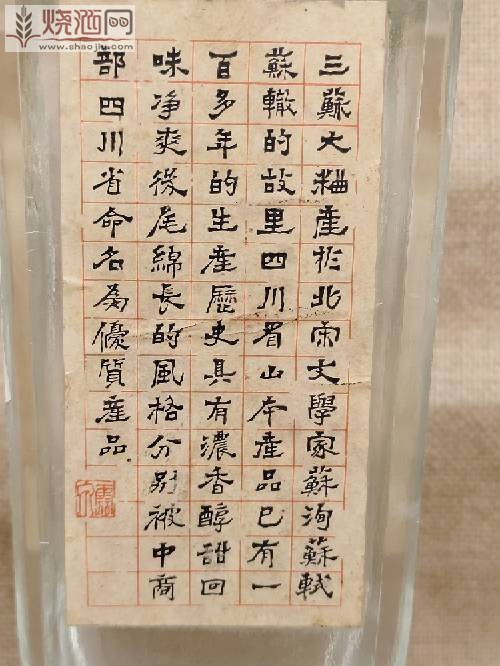 烧酒网
www.shaojiu.com
三蘇大麯產於北宋文學家蘇洵蘇軾
蘇轍的故里四川眉山本產品已有一
百多年的生產歷史具有濃香醇甜回
味净爽後尾綿長的風格分别被中商
部四川省命名為優質產品